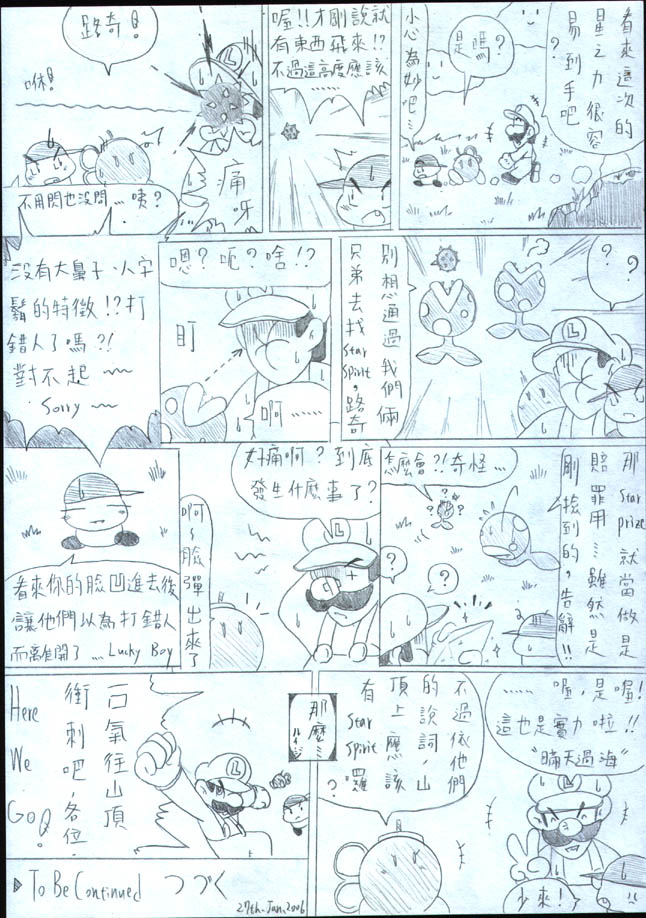 看來這次的
星之力很容
易到手吧
?
是嗎?
小心為妙吧…
喔!!才剛說就
有東西飛來!?
不過這高度應該
……
路奇!
咻!
痛呀
不用閃也沒問…咦?
?
?
別想通過我們倆
兄弟去找
Star
Spirit,路奇
嗯?呃?啥!?
盯
啊……
沒有大鼻子、八字
鬍的特徵!?打
錯人了嗎?!
對不起~~
Sorry~~
那
Star
prize
就當做是
賠罪用…雖然是
剛撿到的,告辭!!
怎麼會?!奇怪…
?
?
好痛啊?到底
發生什麼事了?
啊~臉彈出來了
看來你的臉凹進去後
讓他們以為打錯人
而離開了…Lucky Boy
……喔,是喔!
這也是實力啦!!
"瞞天過海"
少來!
不過依他們
的說詞,山
頂上應該
有
Star
Spirit
囉
?
那麼…
ルイジ
一口氣往山頂
衝刺吧,各位!
Here
We
Go!
To Be Continued つづく
27th.Jan.2006